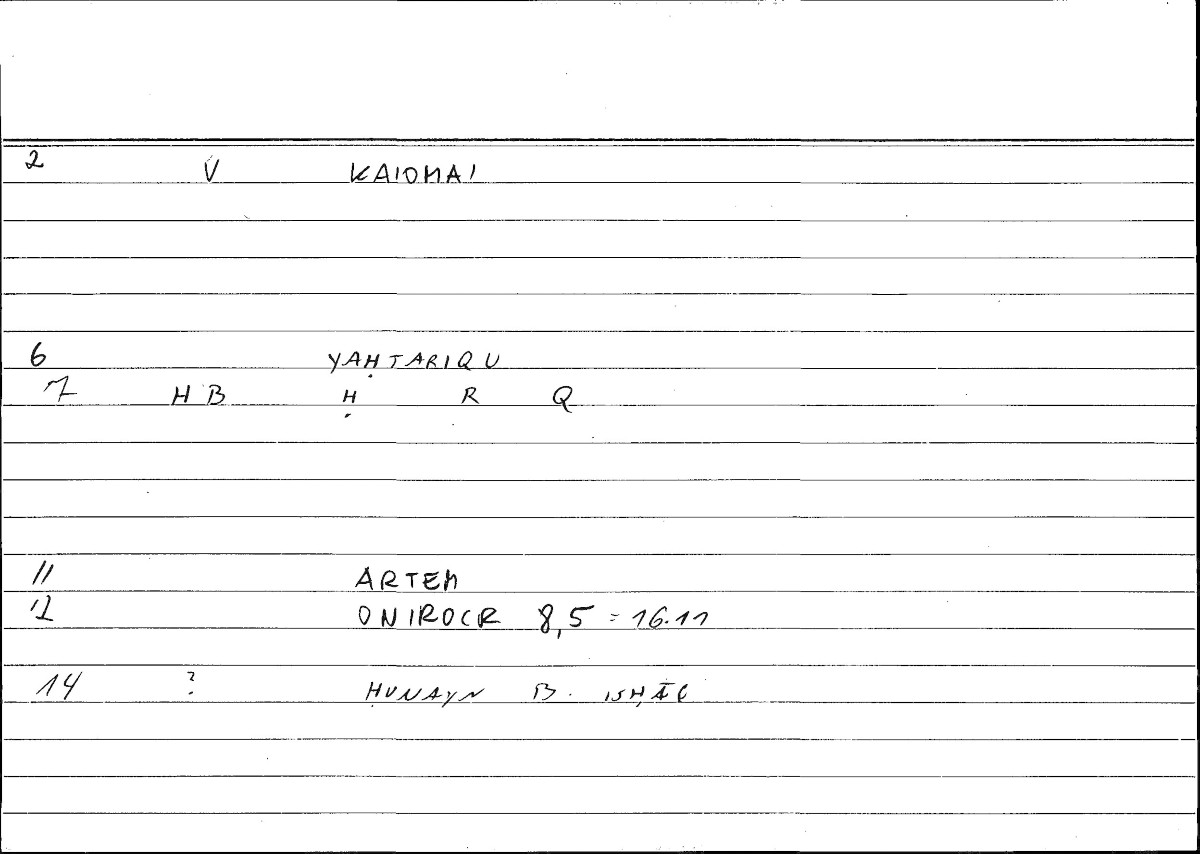 2 V KAIOMAI
6 YAḤTARIQU
7 HB Ḥ R Q
11 ARTEM
12 ONIROCR 8,5 = 16.11
14 ? ḤUNAYN B. ISḤĀQ